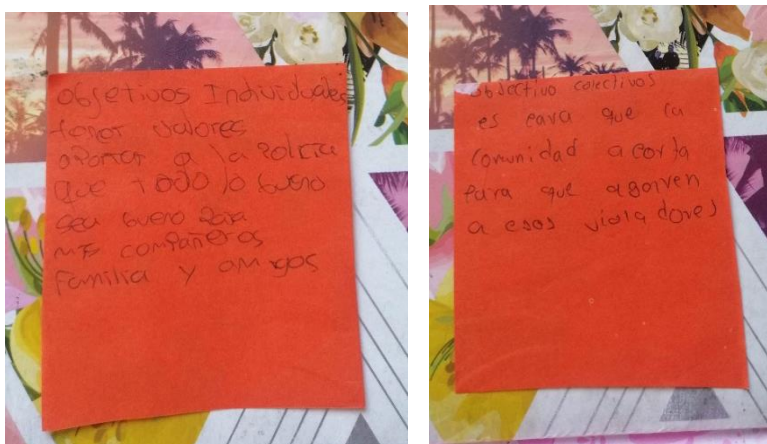 objetivos Individuales
tener valores
aportar a la policia
que todo lo bueno
sea bueno para
mis compañeros
familia y amigos
objectivo colectivos
es para que la
comunidad acorta
para que agarren
a esos violadores